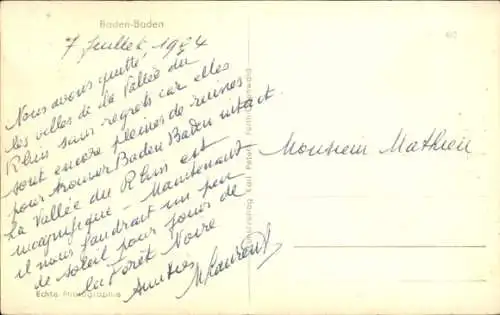 Baden-Baden
7 Juillet, 1954
Nous avons quitté,
les villes de la Vallée du
Rhin sans regrets car elles
sont encore pleines de ruines
pour trouver Baden Baden intact.
La Vallée du Rhin est
magnifique - Maintenant
il nous faudrait un peu
de soleil pour jouir de
la Forêt Noire
Amitiés
Laurent
Echte Photographie
Karl Peter
Monsieur Mathieu